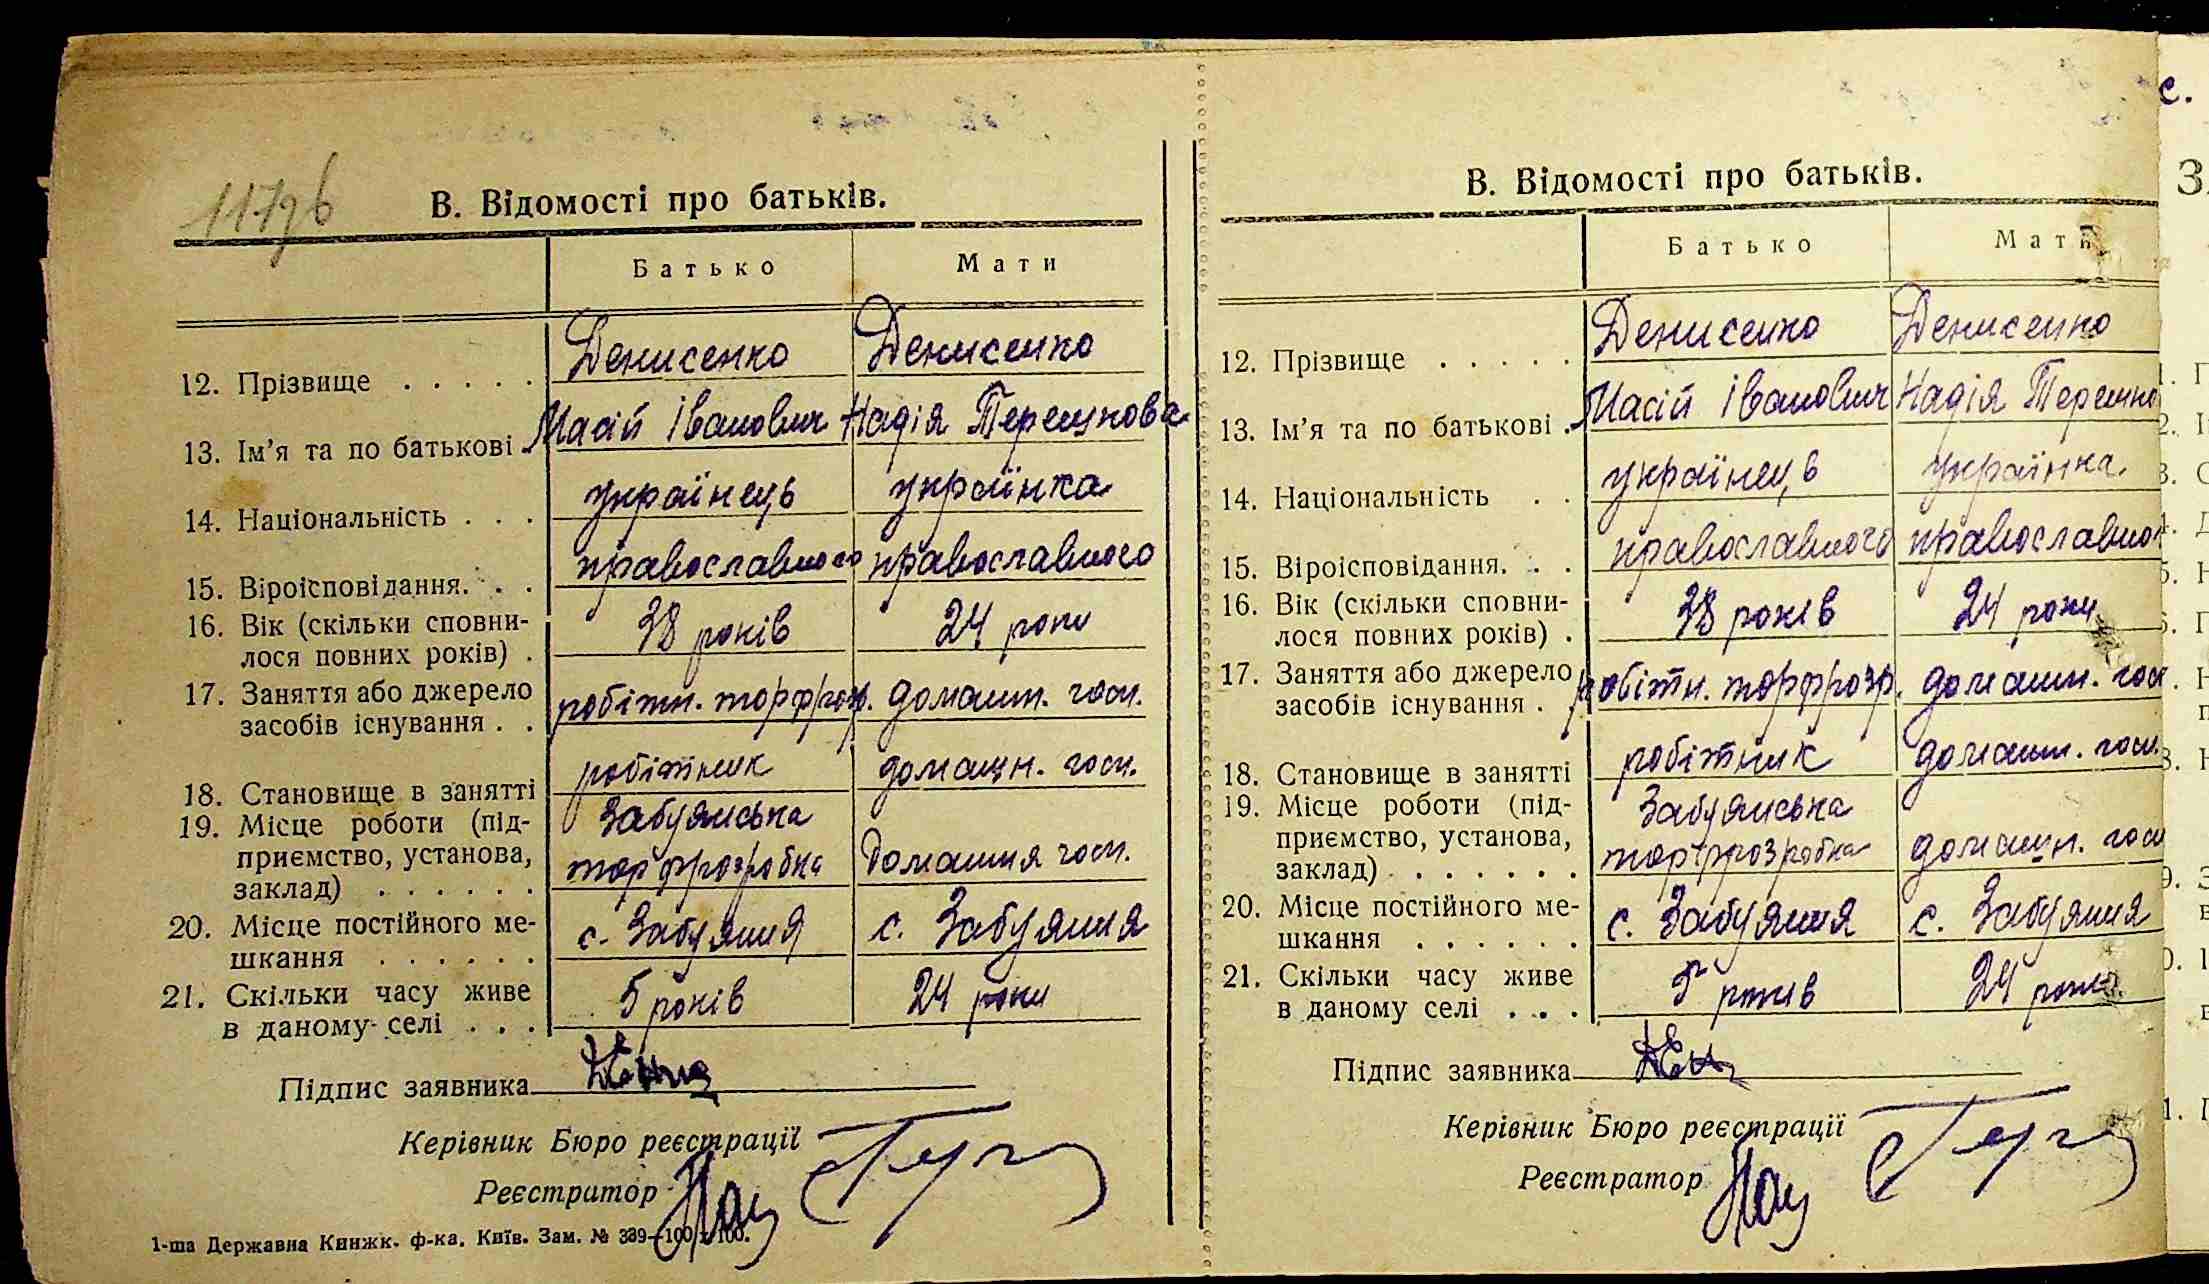 В. Відомості про батьків.
Батько Мати
12. Прізвище . . . . . Денисенко Денисенко
13. Ім'я та по батькові . Масій Іванович Надія Терешкова
14. Національність . . . українець українка
15. Віроісповідання. . . православного православного
16. Вік (скільки сповни-
лося повних років) . 38 років 24 роки
17. Заняття або джерело
засобів існування . . робітн. торфрозр. домашн. госп.
18. Становище в занятті робітник домашн. госп.
19. Місце роботи (під- Забуянська
приємство, установа,
заклад) . . . . . . торфрозробка Домашня госп.
20. Місце постійного ме-
шкання . . . . . . с. Забуяння с. Забуяння
21. Скільки часу живе
в даному селі . . . 5 років 24 роки
Підпис заявника
Керівник Бюро реєстрації
Реєстратор
1-ша Державна Книжк. ф-ка. Київ. Зам. № 339—100 х 100.
В. Відомості про батьків.
Батько Мати
12. Прізвище . . . . . Денисенко Денисенко
13. Ім'я та по батькові . Масій Іванович Надія Терешко
14. Національність . . українець українка
15. Віроісповідання. . . православного православног
16. Вік (скільки сповни-
лося повних років) . 38 років 24 роки
17. Заняття або джерело
засобів існування . робітн. торфрозр. домашн. госп
18. Становище в занятті робітник домашн. госп.
19. Місце роботи (під- Забуянська
приємство, установа,
заклад) . . . . . . . торфрозробка домашн. госп
20. Місце постійного ме-
шкання . . . . . . с. Забуяння с. Забуяння
21. Скільки часу живе
в даному селі . . . 5 років 24 роки
Підпис заявника
Керівник Бюро реєстрації
Реєстратор